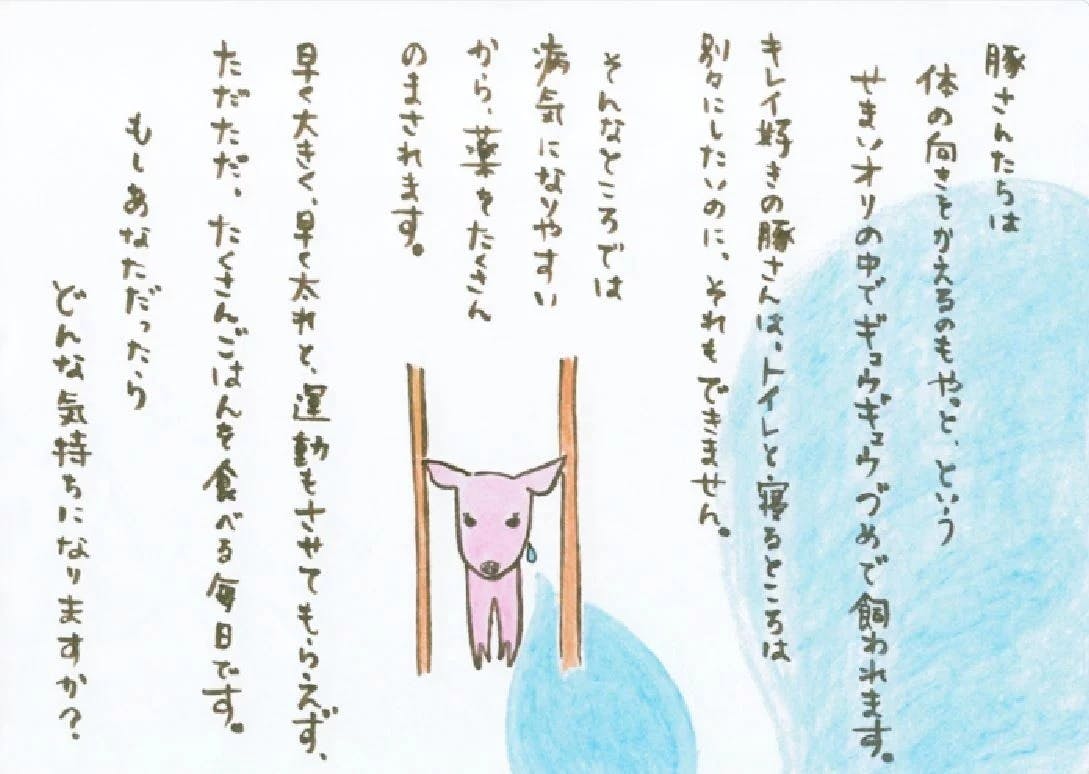 豚さんたちは
体の向きをかえるのもやっと、という
せまいオリの中でギュウギュウづめで飼われます。
キレイ好きの豚さんは、トイレと寝るところは
別々にしたいのに、それもできません。
そんなところでは
病気になりやすい
から、薬をたくさん
のまされます。
早く大きく、早く太れと、運動もさせてもらえず、
ただただ、たくさんごはんを食べる毎日です。
もしあなただったら
どんな気持ちになりますか?